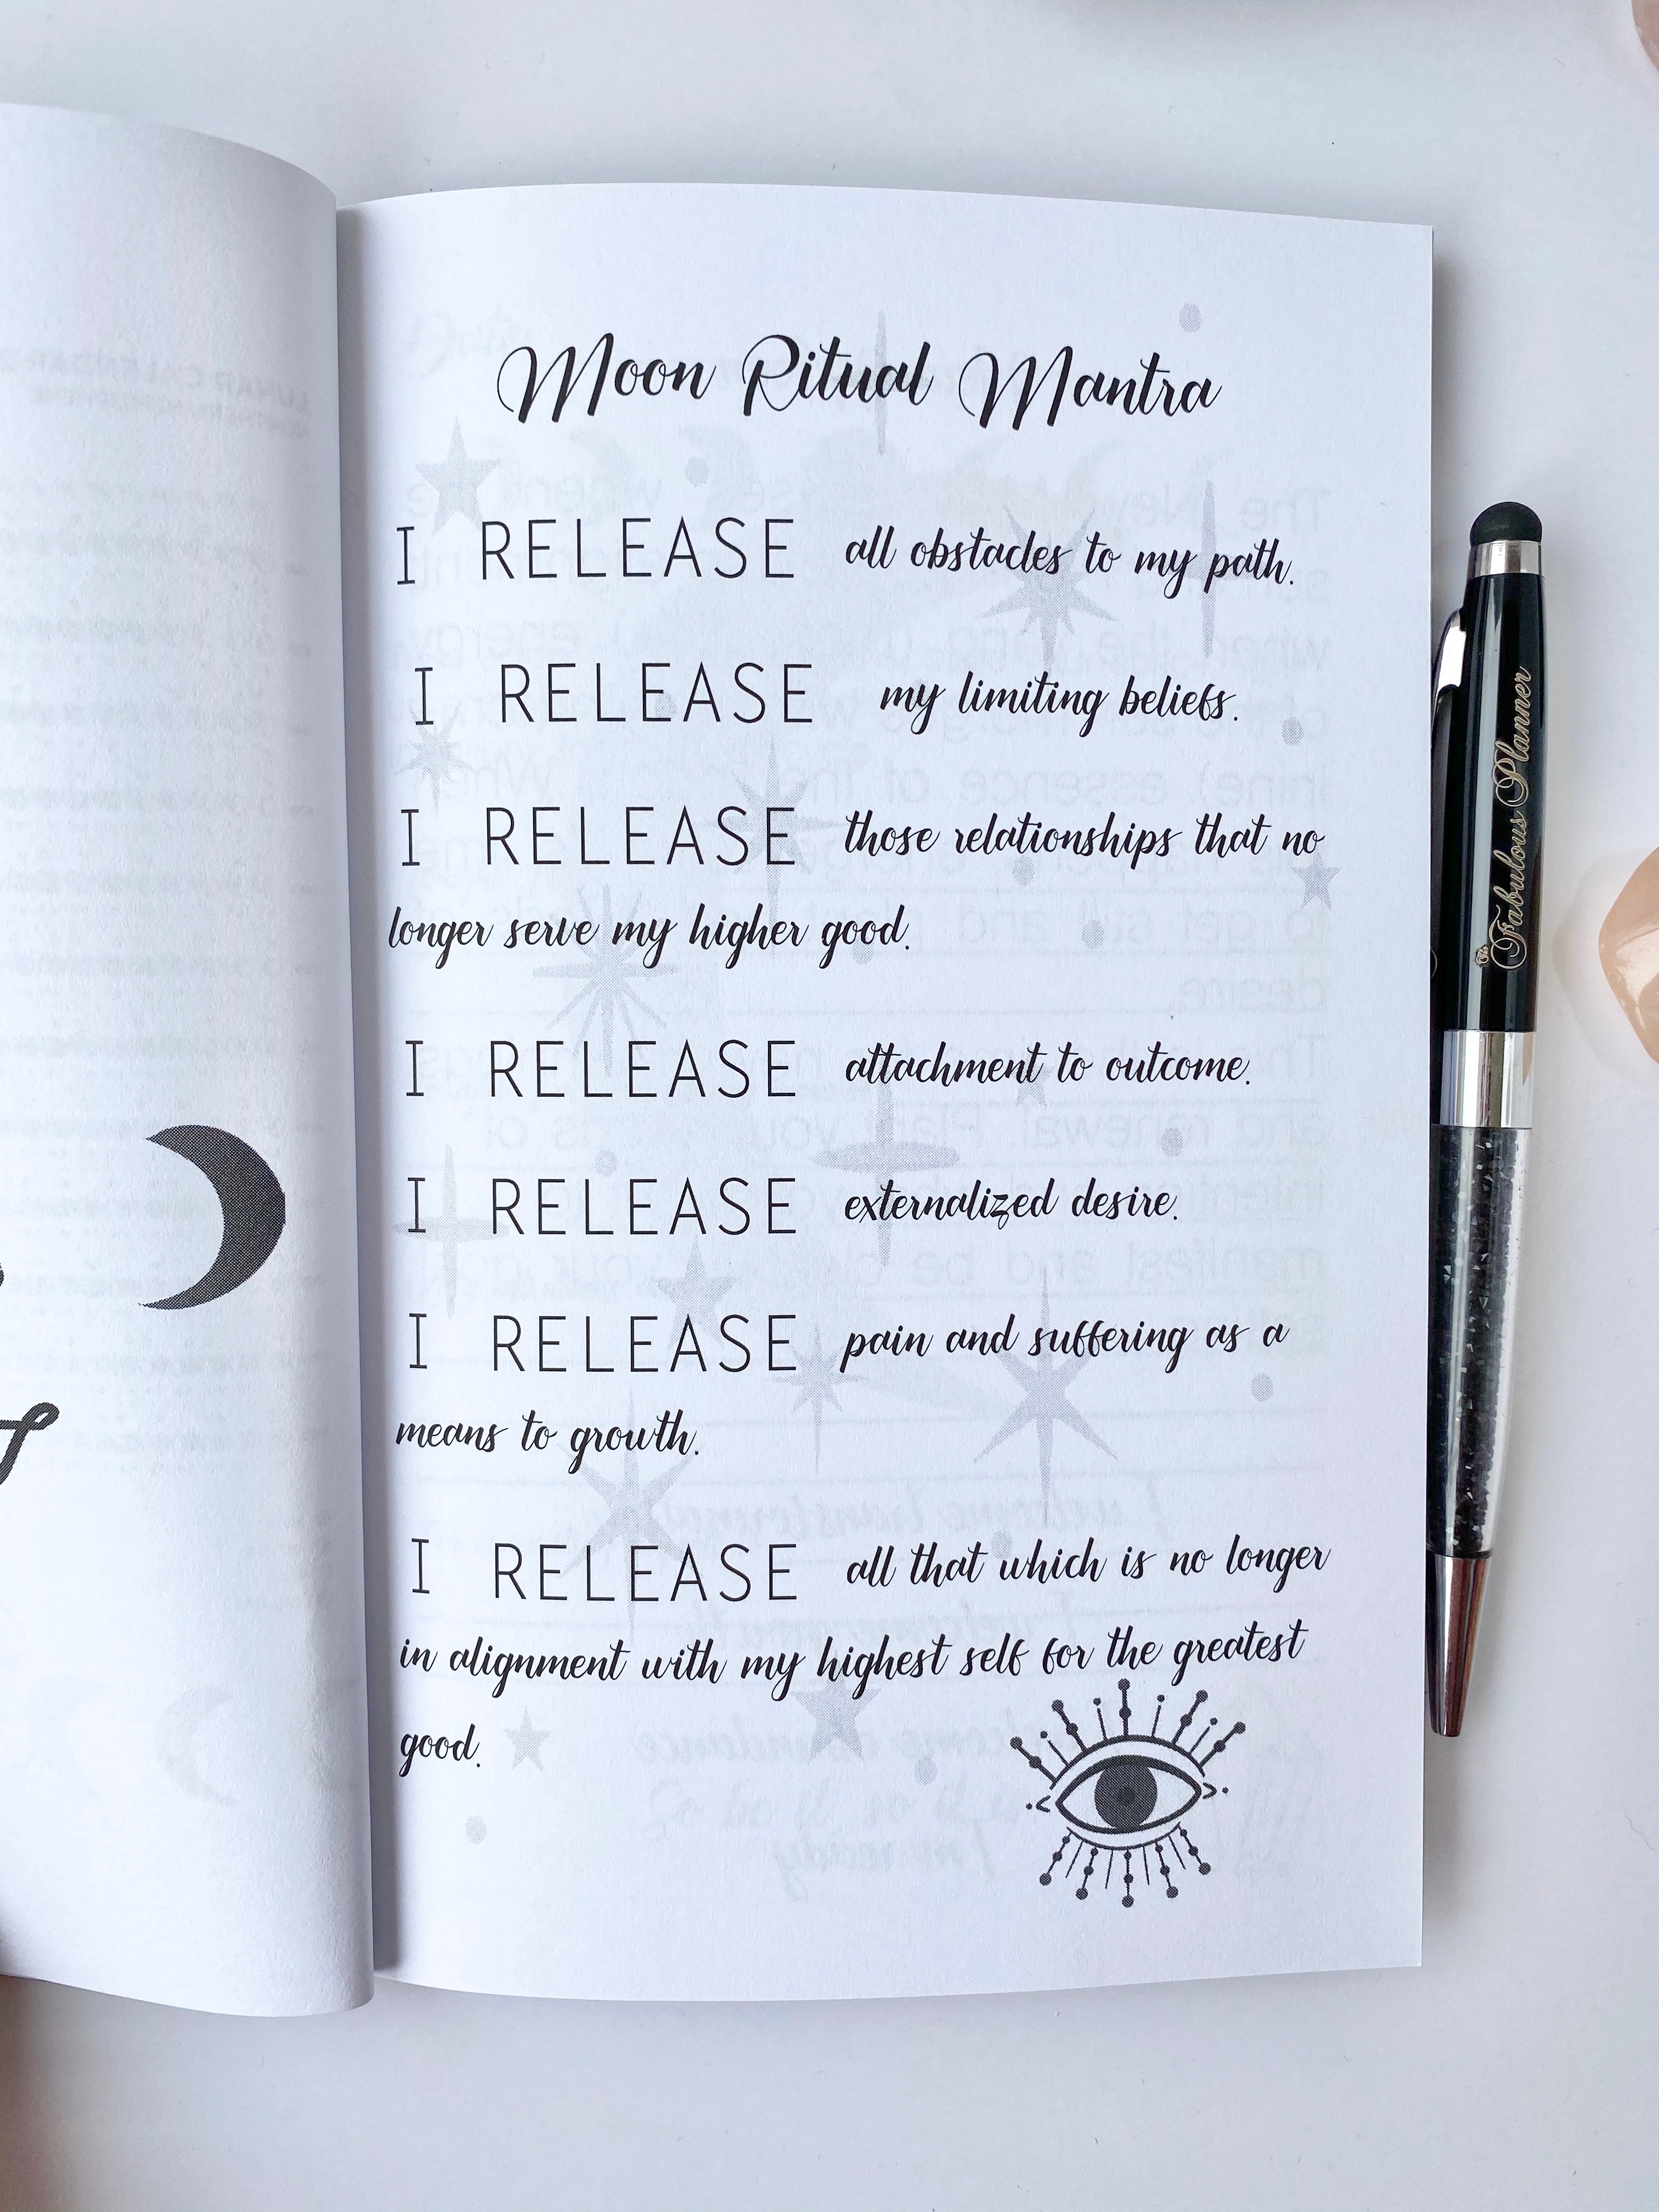 Moon Ritual Mantra
I RELEASE all obstacles to my path.
I RELEASE my limiting beliefs.
I RELEASE those relationships that no
longer serve my higher good.
I RELEASE attachment to outcome.
I RELEASE externalized desire.
I RELEASE pain and suffering as a
means to growth.
I RELEASE all that which is no longer
in alignment with my highest self for the greatest
good.
Fabulous Planner